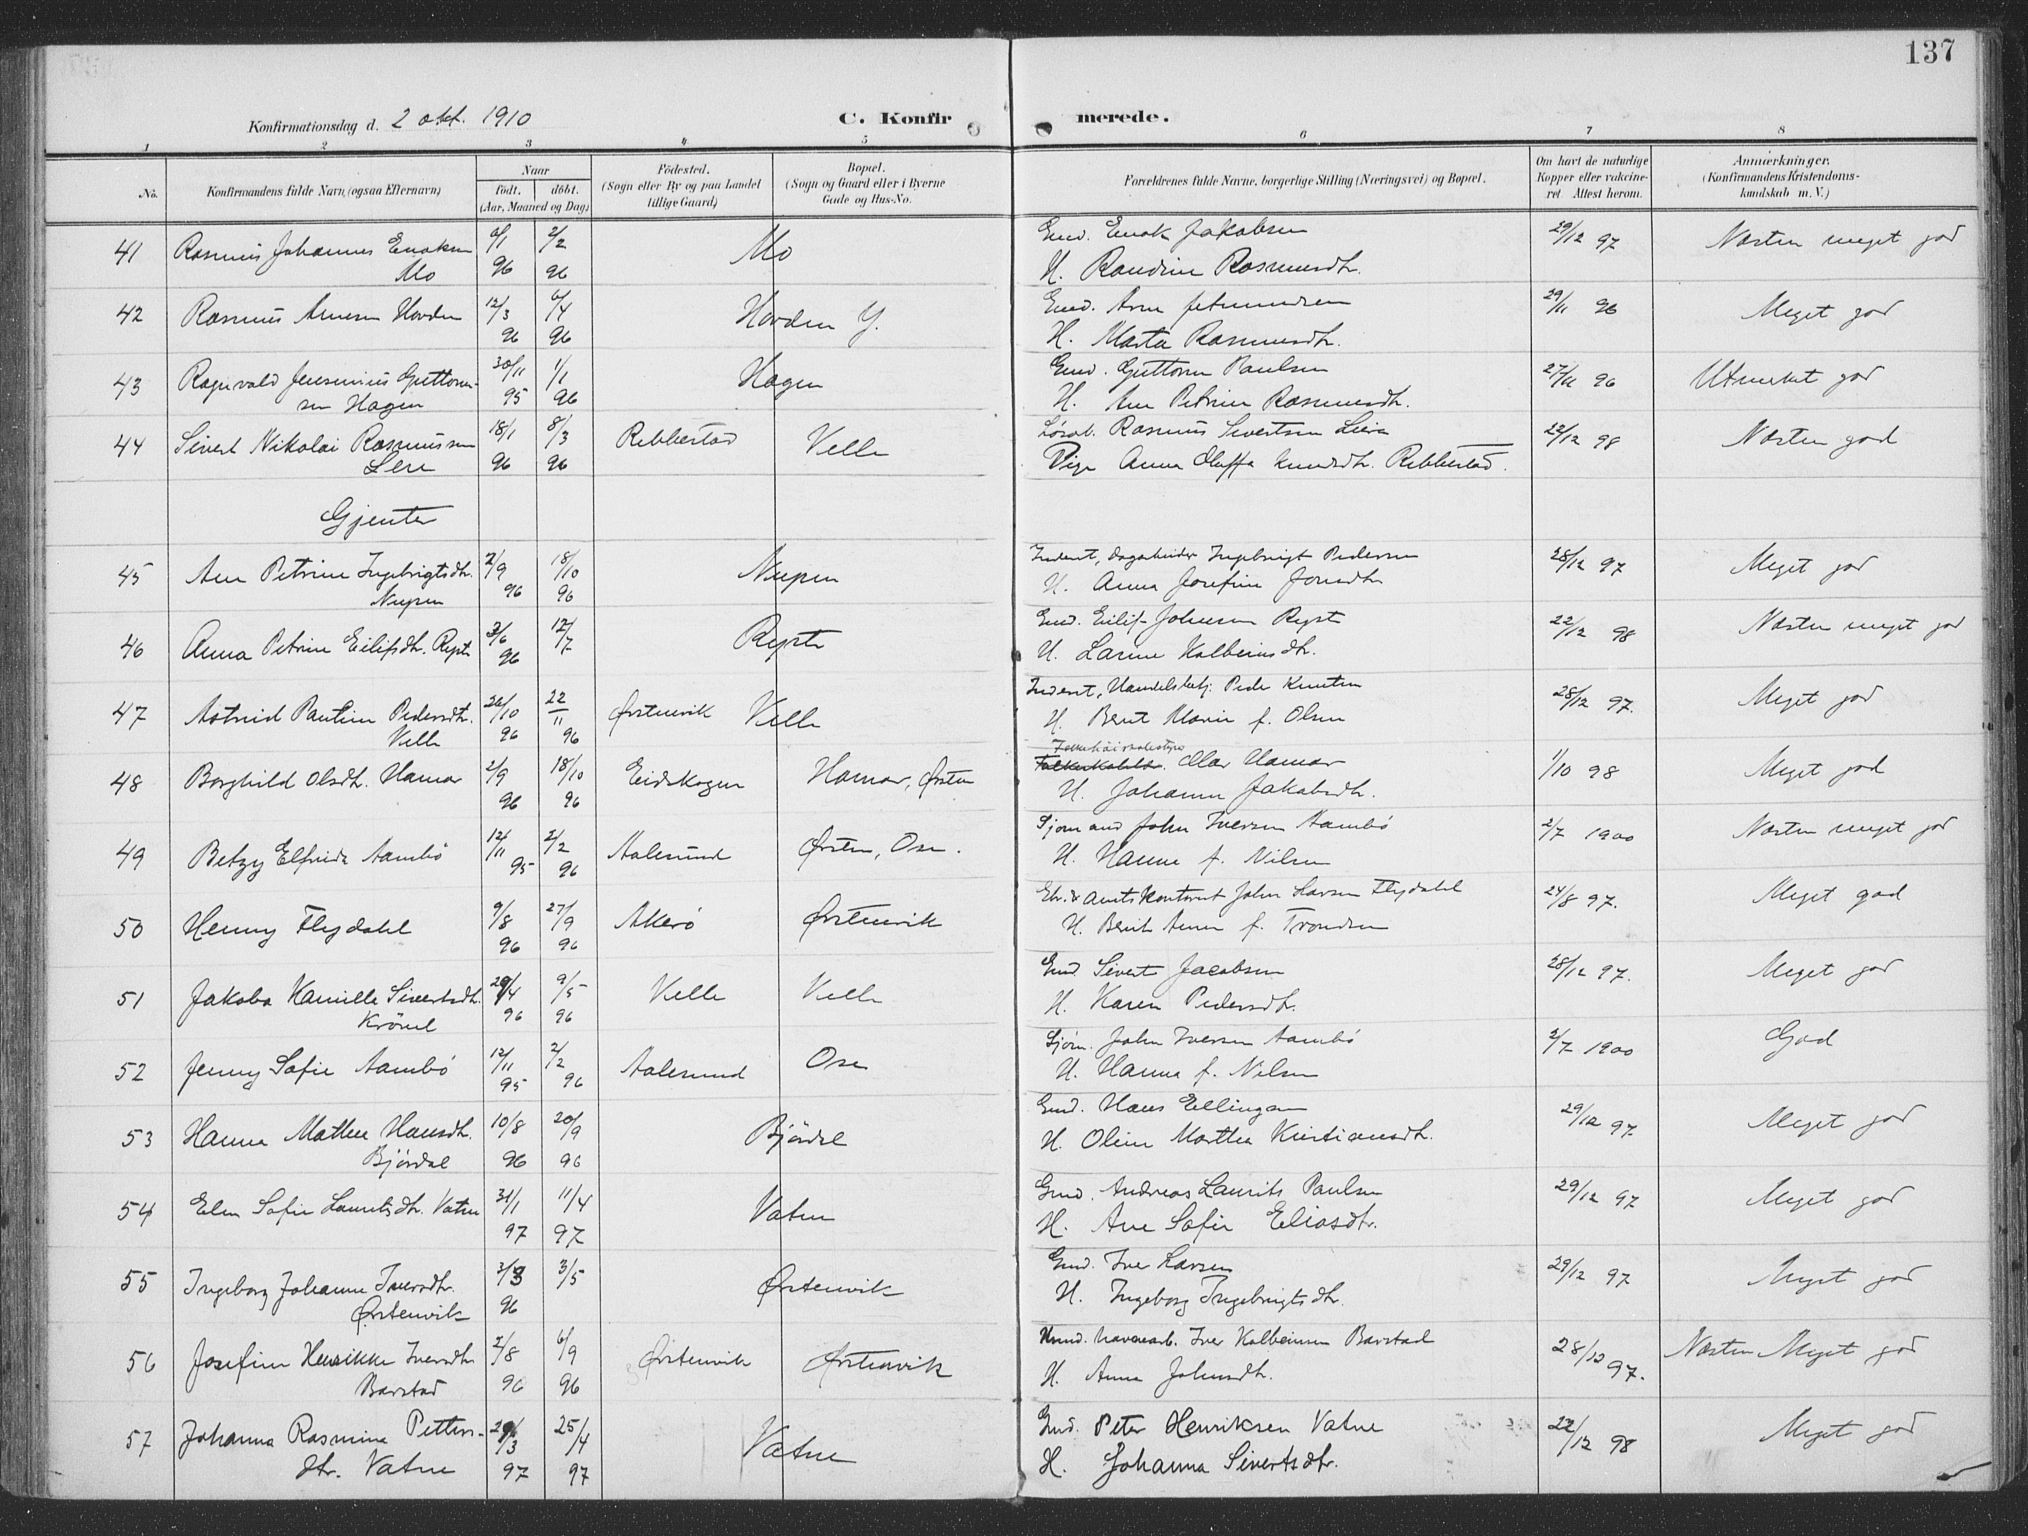 137
Konfirmationsdag d. 2 okt. 1910
C. Konfirmerede.
1 2 3 4 5 6 7 8
No. Konfirmandens fulde Navn, (ogsaa Efternavn) Naar født. døbt. (Aar, Maaned og Dag) Födested. (Sogn eller By og paa Landet tillige Gaard) Bopæl. (Sogn og Gaard eller i Byerne Gade og Hus-No. Forældrenes fulde Navne, borgerlige Stilling (Næringsvei) og Bopæl. Om havt de naturlige Kopper eller vakcineret. Attest herom. Anmærkninger. (Konfirmandens Kristendomskundskab m. V.)
41 Rasmus Johannes Enoksen 6/1 2/2 Mo Gmd. Enok Jakobsen 29/12 97 Næsten meget god
Mo 96 96 H. Randine Rasmusdtr.
42 Rasmus Arnesen Hovden 12/3 6/4 Hovden Y. Gmd. Arne Jetmundsen 29/11 96 Meget god
96 96 H. Marta Rasmusdtr.
43 Ragnvald Jensenius Guttorm- 30/11 1/1 Hagen Gmd. Guttorm Paulsen 27/11 96 Utmerket god
sen Hagen 95 96 H. Ane Petrine Rasmusdtr.
44 Sivert Nikolai Rasmussen 18/1 8/3 Ribbestad Velle Løsarb. Rasmus Sivertsen Leira 22/12 98 Næsten god
96 96 Pige Anna Oluffa Knudsdtr. Ribbestad.
Gjenter
45 Ane Petrine Ingebrigtsdtr. 2/9 18/10 Nupen Inderst, dagarbeider Ingebrigt Pedersen 28/12 97 Meget god
Nupen 96 96 H. Anna Josefine Jonsdtr
46 Anna Petrine Eilifsdtr. Ryste 3/6 12/7 Ryste Gmd. Eilif Johnsen Ryste 22/12 98 Næsten meget god
96 H. Larine Kolbeinsdtr.
47 Astrid Pauline Pedersdtr. 26/10 22/11 Ørstenvik Velle Inderst, Handelsbetj. Peder Knutsen 28/12 97. Meget god
Velle 96 96 H. Berit Marie f. Olsen
48 Borghild Olsdtr. Hamar 2/9 18/10 Eidskogen Hamar, Ørsten Olav Hamar 1/10 98 Meget god
96 96 H. Johanne Jakobsdtr.
49 Betzy Elfrida Aambø 12/11 2/2 Aalesund Ørsten, Ose. Sjømand John Iversen Aambø 2/7 1900 Næsten meget god
95 96 H. Hanna f. Nilsen
50 Henny Flydahl 9/8 27/9 Akerø Ørstenvik Amtskontorist John Larsen Flydahl 24/8 97. Meget god
96 96 H. Berit Anna f. Trondsen
51 Jakoba Kamilla Sivertsdtr. 29/4 9/5 Velle Velle Gmd. Sivert Jacobsen 28/12 97. Meget god
96 96 H. Karen Pedersdtr.
52 Jenny Sofie Aambø 12/11 2/2 Aalesund Ose Sjøm. John Iversen Aambø 2/7 1900 God
95 96 H. Hanna f. Nilsen
53 Hanna Mathea Hansdtr. 10/8 20/9 Bjørdal Gmd. Hans Ellingsen 29/12 97. Meget god
Bjørdal 96 96 H. Oline Marthea Kristiansdtr.
54 Elen Sofie Lauritsdtr. Vatne 31/1 11/4 Vatne Gmd. Andreas Laurits Paulsen 29/12 97 Meget god
97 97 H. Ane Sofie Eliasdtr.
55 Ingeborg Johanne Iversdtr. 2/3 3/5 Ørstenvik Gmd. Iver Larsen 29/12 97 Meget god
Ørstenvik 96 H. Ingeborg Ingebrigtsdtr.
56 Josefine Henrikke Iversdtr 2/8 6/9 Ørstenvik Ørstenvik Iver Kolbeinsen Barstad 28/12 97. Næsten Meget god
Barstad 96 96 H. Anna Johnsdtr.
57 Johanna Rasmina Petters- 29/3 25/4 Vatne Gmd. Peter Henriksen Vatne 22/12 98 Meget god
dtr. Vatne 97 97 H. Johanna Sivertsdtr.